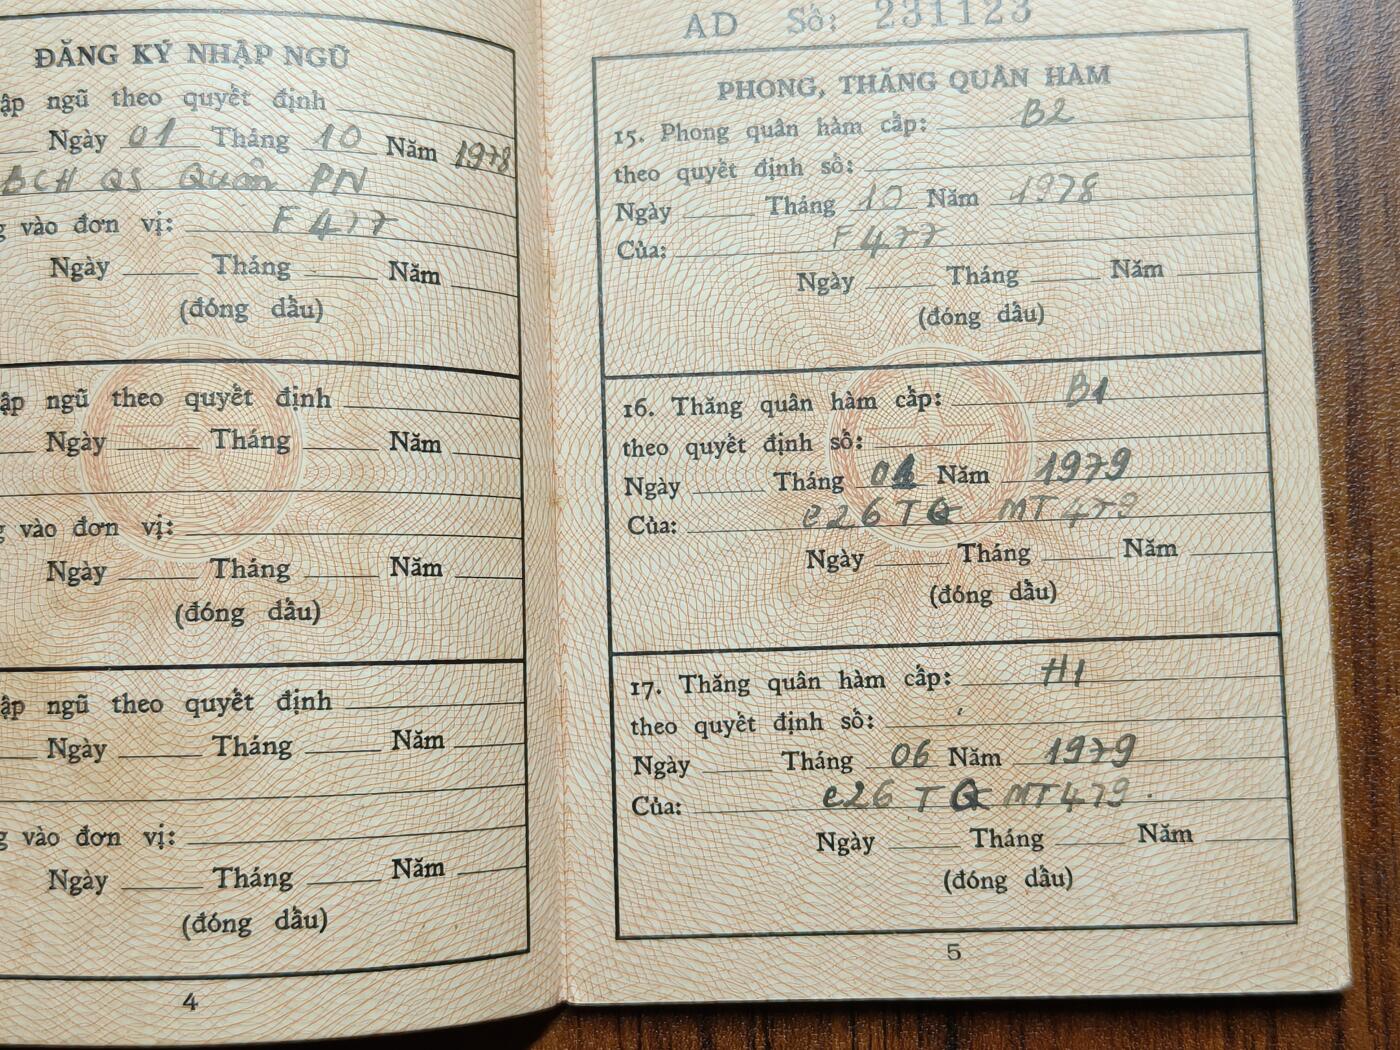 ĐĂNG KÝ NHẬP NGŨ
ập ngũ theo quyết định
Ngày 01 Tháng 10 Năm 1978
BCH QS Quân PN
g vào đơn vị: F 477
Ngày Tháng Năm
(đóng dấu)
ập ngũ theo quyết định
Ngày Tháng Năm
g vào đơn vị:
Ngày Tháng Năm
(đóng dấu)
ập ngũ theo quyết định
Ngày Tháng Năm
g vào đơn vị:
Ngày Tháng Năm
(đóng dấu)
4
AD Số: 231123
PHONG, THĂNG QUÂN HÀM
15. Phong quân hàm cấp: B2
theo quyết định số:
Ngày Tháng 10 Năm 1978
Của: F 477
Ngày Tháng Năm
(đóng dấu)
16. Thăng quân hàm cấp: B1
theo quyết định số:
Ngày Tháng 01 Năm 1979
Của: e26 TG MT 479
Ngày Tháng Năm
(đóng dấu)
17. Thăng quân hàm cấp: H1
theo quyết định số:
Ngày Tháng 06 Năm 1979
Của: e26 TG MT 479.
Ngày Tháng Năm
(đóng dấu)
5